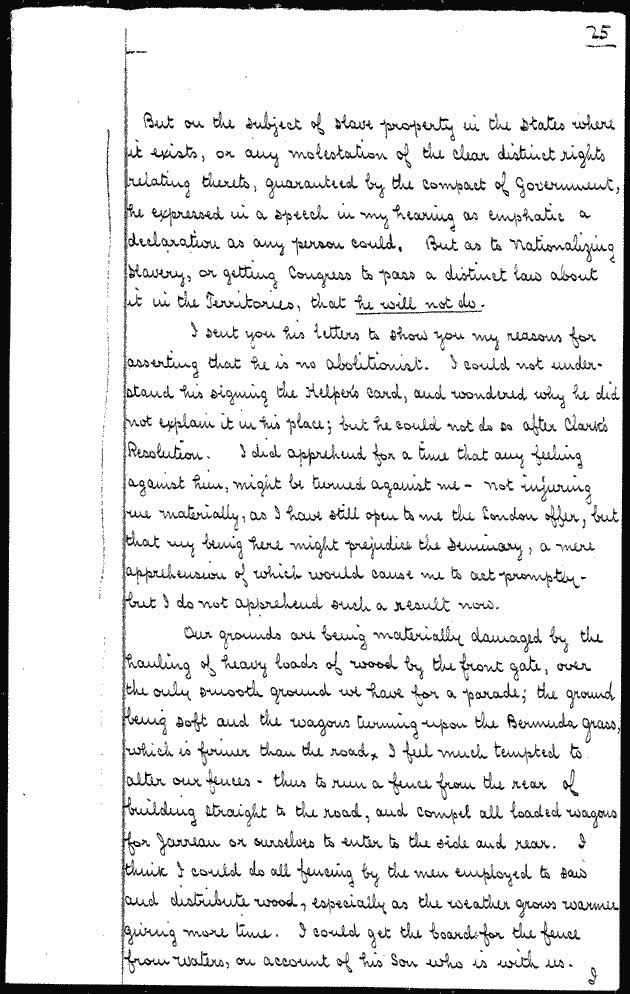 25
But on the subject of slave property in the states where
it exists, or any molestation of the clear distinct rights
relating thereto, guaranteed by the compact of Government,
he expressed in a speech in my hearing as emphatic a
declaration as any person could. But as to Nationalizing
slavery, or getting Congress to pass a distinct law about
it in the Territories, that he will not do.
I sent you his letters to show you my reasons for
asserting that he is no abolitionist. I could not under-
stand his signing the Helper's card, and wondered why he did
not explain it in his place; but he could not do so after Clark's
Resolution. I did apprehend for a time that any feeling
against him, might be turned against me - not injuring
me materially, as I have still open to me the London offer, but
that my being here might prejudice the Seminary, a mere
apprehension of which would cause me to act promptly -
but I do not apprehend such a result now.
Our grounds are being materially damaged by the
hauling of heavy loads of wood by the front gate, over
the only smooth ground we have for a parade; the ground
being soft and the wagons turning upon the Bermuda grass,
which is firmer than the road, I feel much tempted to
alter our fences - thus to run a fence from the rear of
building straight to the road, and compel all loaded wagons
for Jarreau or ourselves to enter to the side and rear. I
think I could do all fencing by the men employed to saw
and distribute wood, especially as the weather grows warmer
giving more time. I could get the boards for the fence
from Waters, on account of his Son who is with us.
I